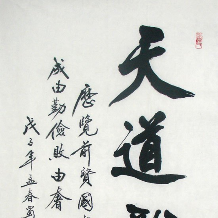 天道
歷覽前賢國
成由勤儉敗由奢
戊子年立春